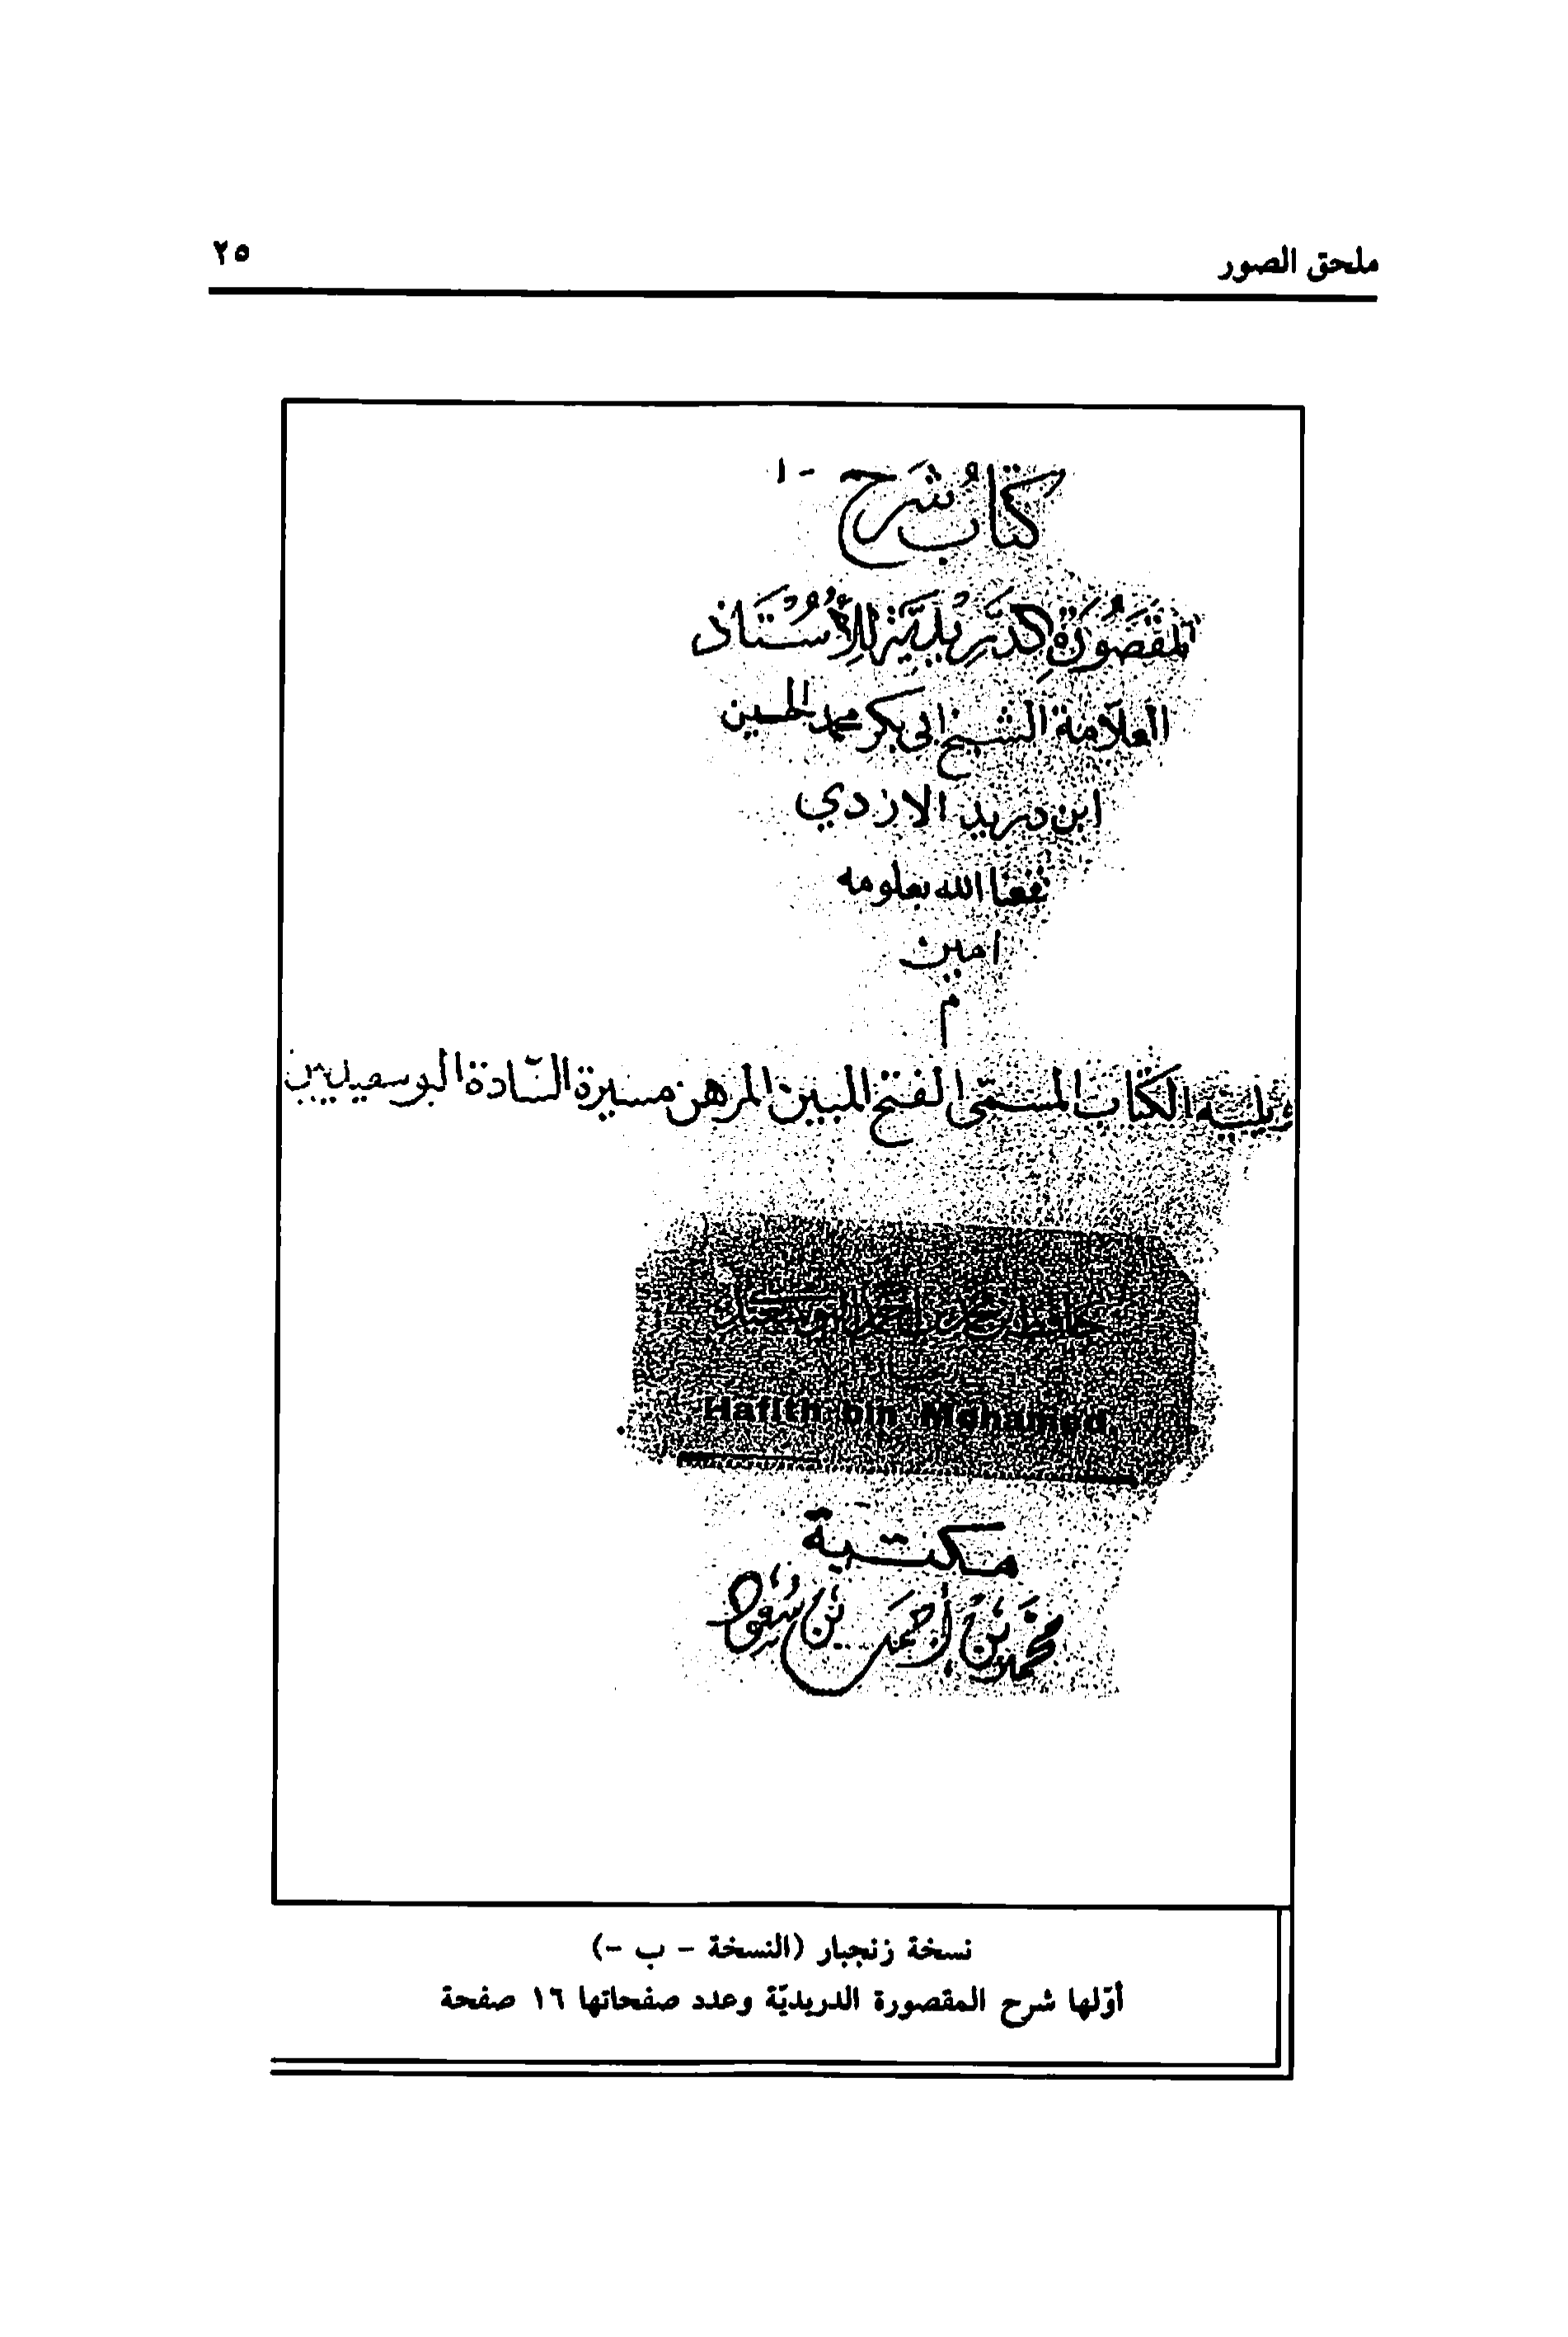 ملحق الصور
٢٥
كتابُ شرح - ١
المقصُورَةِ الدُّرَيْدِيَّة للأُسْتَاذ
العلّامة الشيخ ابى بكر محمد الحسين
ابن دريد الازدي
نفعنا الله بعلومه
امين
م
ويليه الكتاب المسمّى الفتح المبين المبرهن سيرة السّادة البوسعيديين
حافظ بن محمد بن احمد البوسعيدي
Hafith bin Mohamed
مكتبة
محمد بن أحمد بن سعود
نسخة زنجبار (النسخة - ب -)
أوّلها شرح المقصورة الدريديّة وعدد صفحاتها ١٦ صفحة